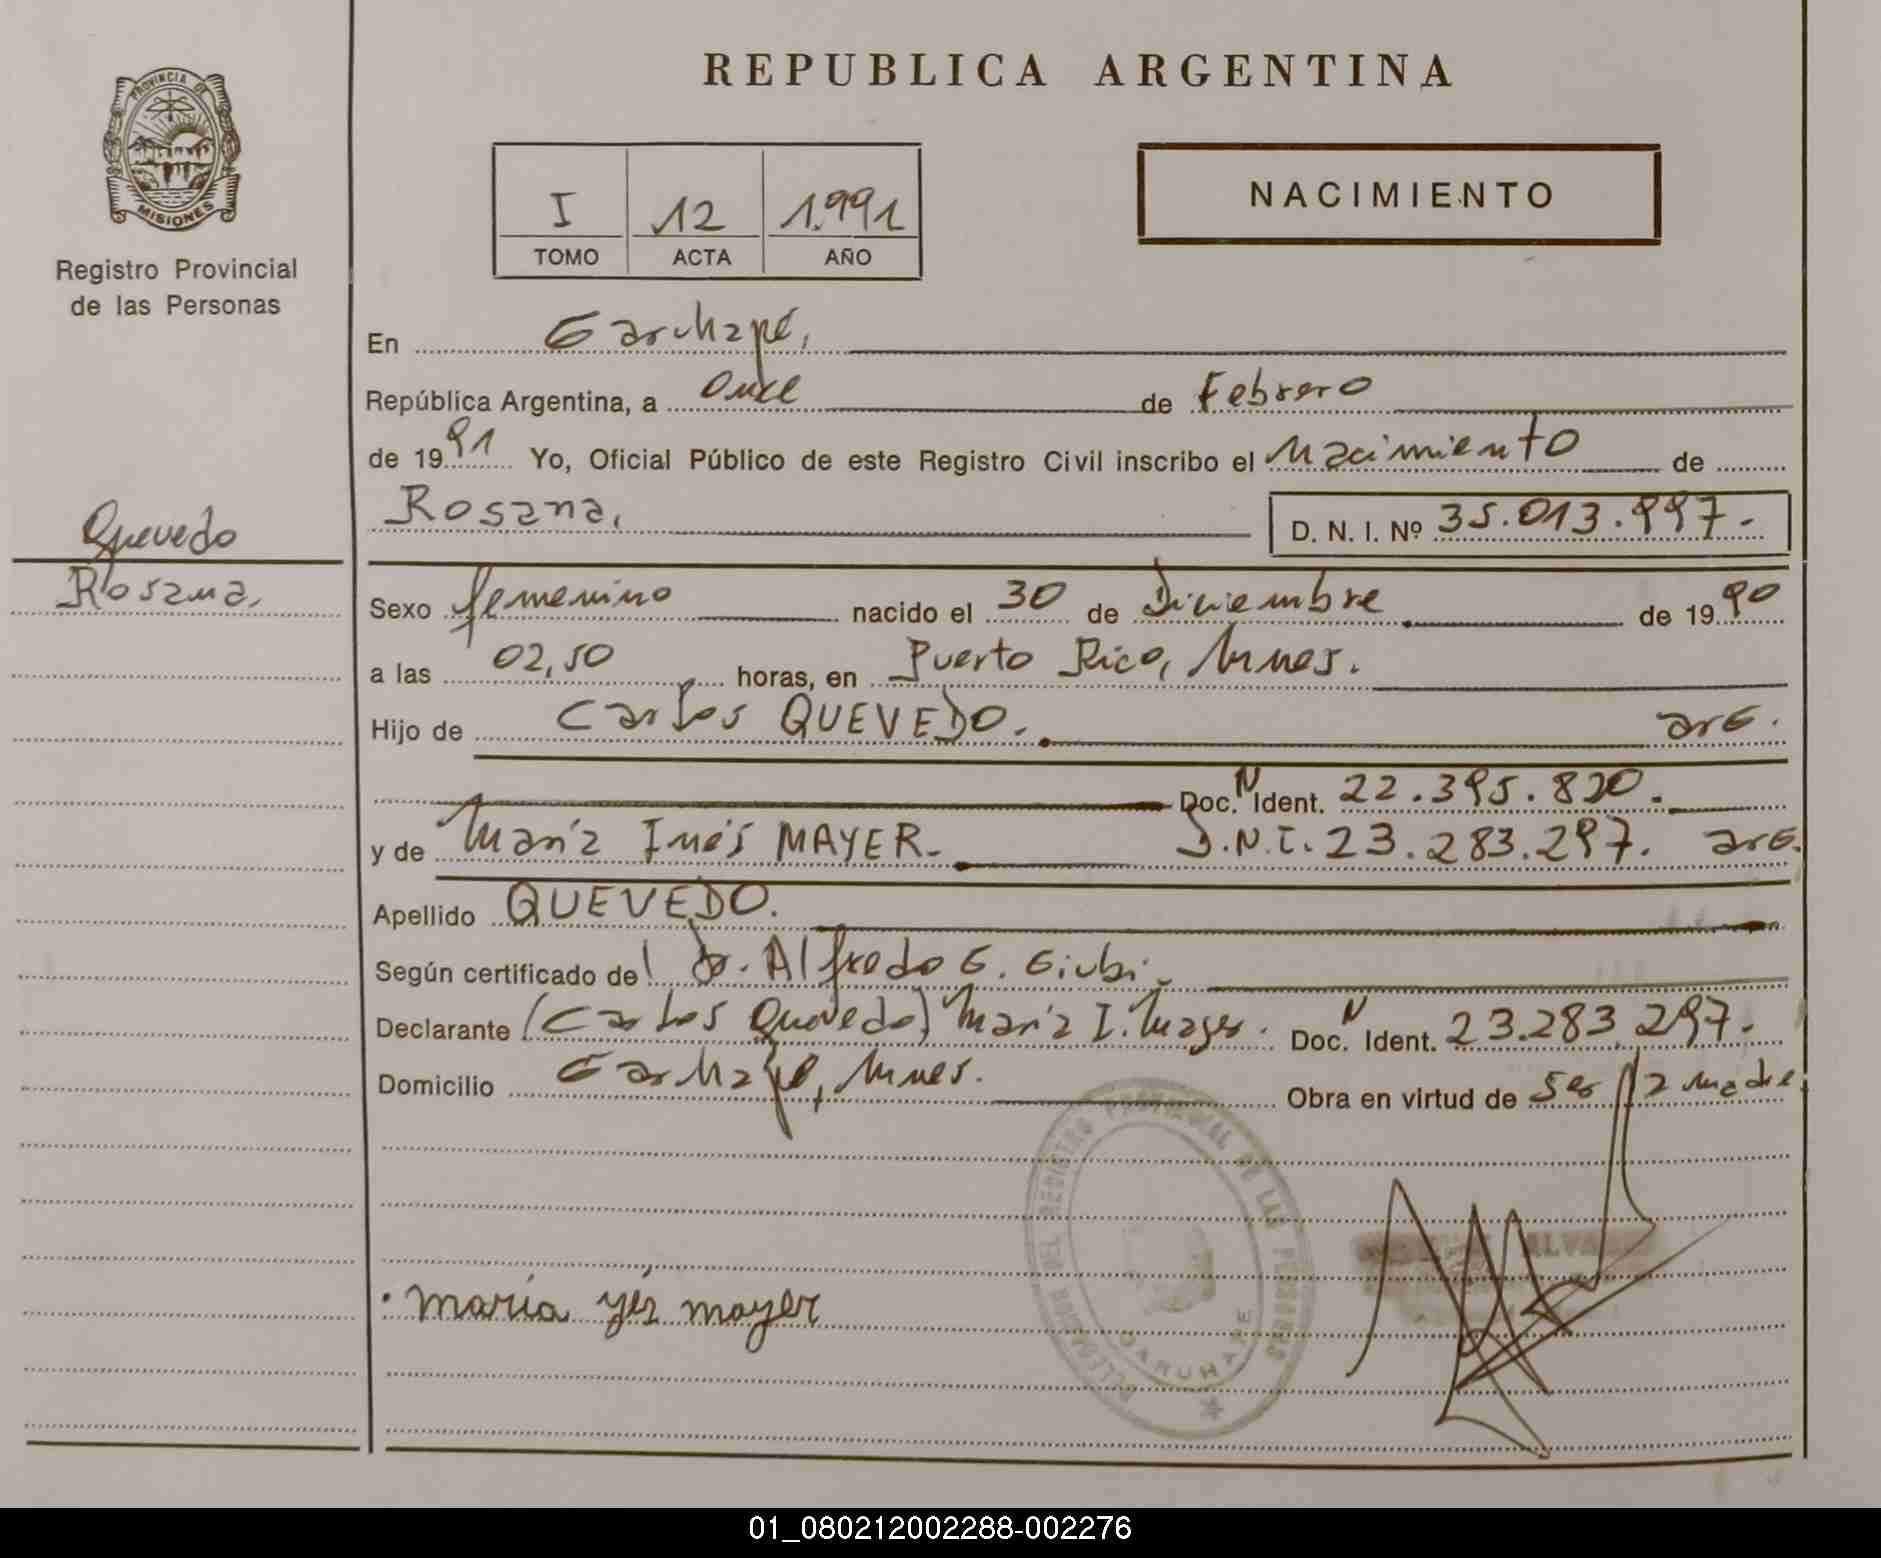 REPUBLICA ARGENTINA
PROVINCIA DE
MISIONES
Registro Provincial
de las Personas
I 12 1.991
TOMO ACTA AÑO
NACIMIENTO
En Garuhapé,
República Argentina, a Once de Febrero
de 1991 Yo, Oficial Público de este Registro Civil inscribo el Nacimiento de
Rosana, D. N. I. Nº 35.013.997.-
Quevedo
Rosana,
Sexo femenino nacido el 30 de Diciembre de 1990
a las 02,50 horas, en Puerto Rico, Mnes.
Hijo de Carlos QUEVEDO.- arG.
Doc. N Ident. 22.395.820.-
y de María Inés MAYER.- D.N.I. 23.283.297. arG.
Apellido QUEVEDO.
Según certificado de Dr. Alfredo G. Giubi.-
Declarante (Carlos Quevedo) María I. Mayer. Doc. N Ident. 23.283.297.-
Domicilio Garuhapé, Mnes. Obra en virtud de ser la madre.
DELEGACION DEL REGISTRO PROVINCIAL DE LAS PERSONAS
GARUHAPE
maria ynés mayer
01_080212002288-002276